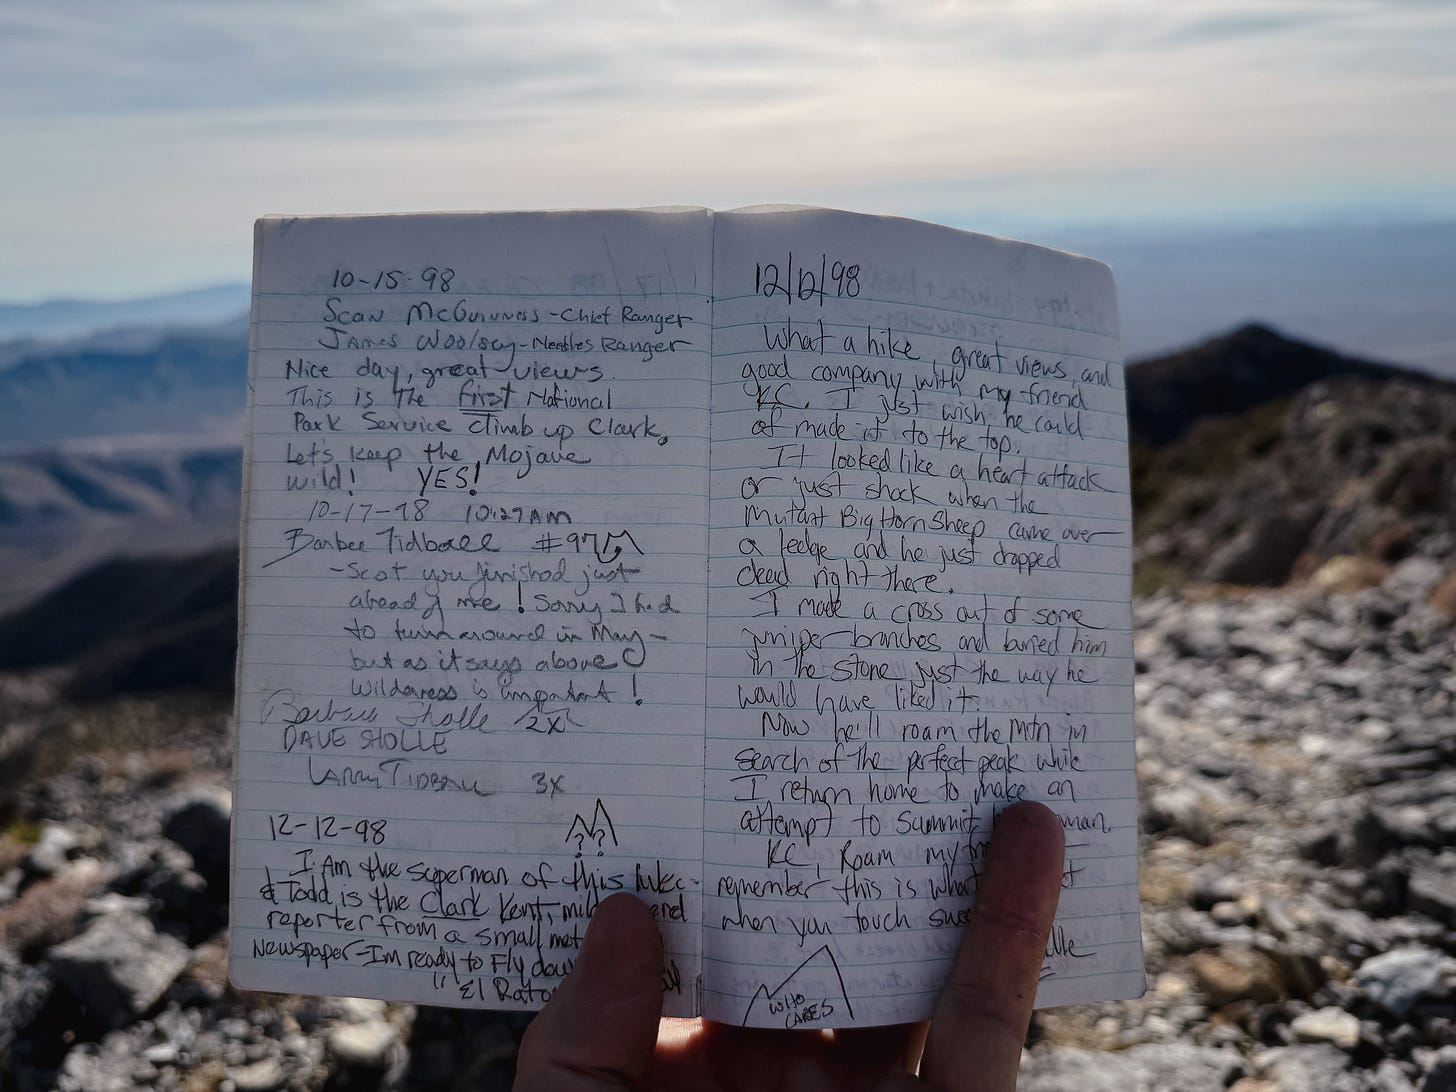 10-15-98
Sean McGuinness - Chief Ranger
James Woolsey - Needles Ranger
Nice day, great views.
This is the first National
Park Service climb up Clark,
Let's keep the Mojave
wild! YES!
10-17-98 10:27AM
Barbee Tidball #97
- Scot you finished just
ahead of me! Sorry I had
to turn around in May -
but as it says above
Wilderness is important!
Barbara Sholle 2X
DAVE SHOLLE
Larry Tidball 3X
12-12-98
? ?
I Am the superman of this hike -
& Todd is the Clark Kent, mild
reporter from a small
Newspaper - I'm ready to Fly down
"El
12/12/98
What a hike, great views, and
good company with my friend
KC. I just wish he could
of made it to the top.
It looked like a heart attack
or just shock when the
Mutant Big Horn Sheep came over
a ledge and he just dropped
dead right there.
I made a cross out of some
juniper branches and buried him
in the stone just the way he
would have liked it.
Now he'll roam the Mtn in
search of the perfect peak while
I return home to make an
attempt to summit
KC, Roam my
remember this is
when you touch
WHO
CARES